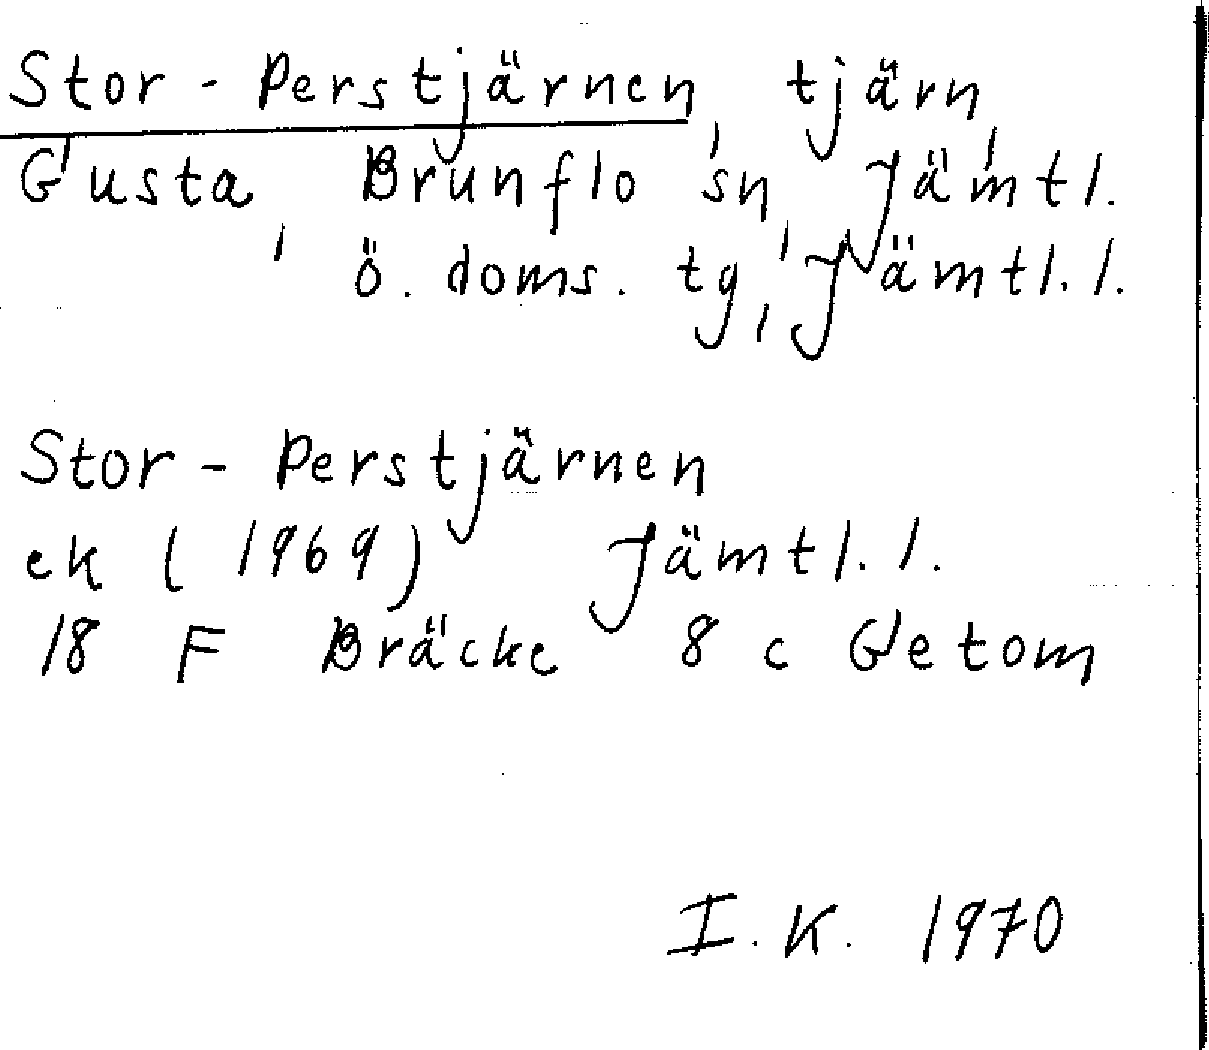 Stor-Perstjärnen, tjärn,
Gusta, Brunflo sn, Jämtl.
ö. doms. tg, Jämtl. l.
Stor-Perstjärnen
ek (1969) Jämtl. l.
18 F Bräcke 8 c Getom
I. K. 1970